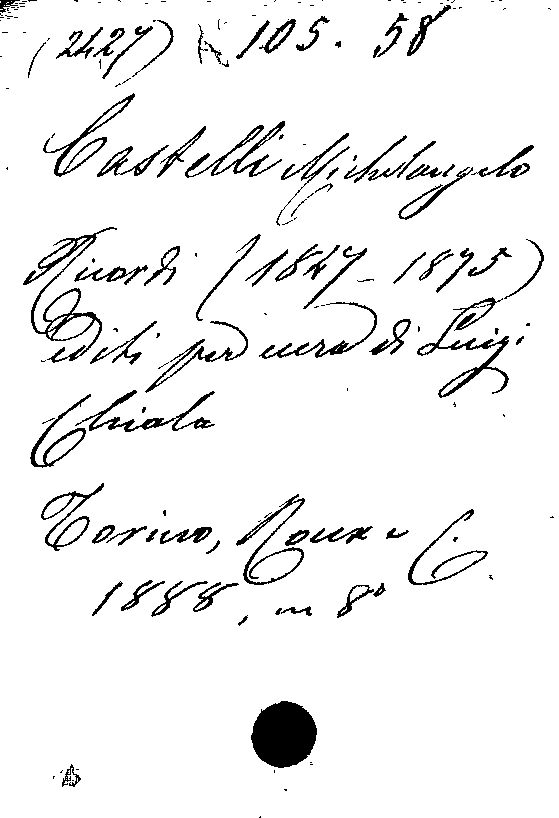 (2427) A 105. 58
Castelli Michelangelo
Ricordi (1847-1875)
editi per cura di Luigi
Chiala
Torino, Roux e C.
1888, in 8º